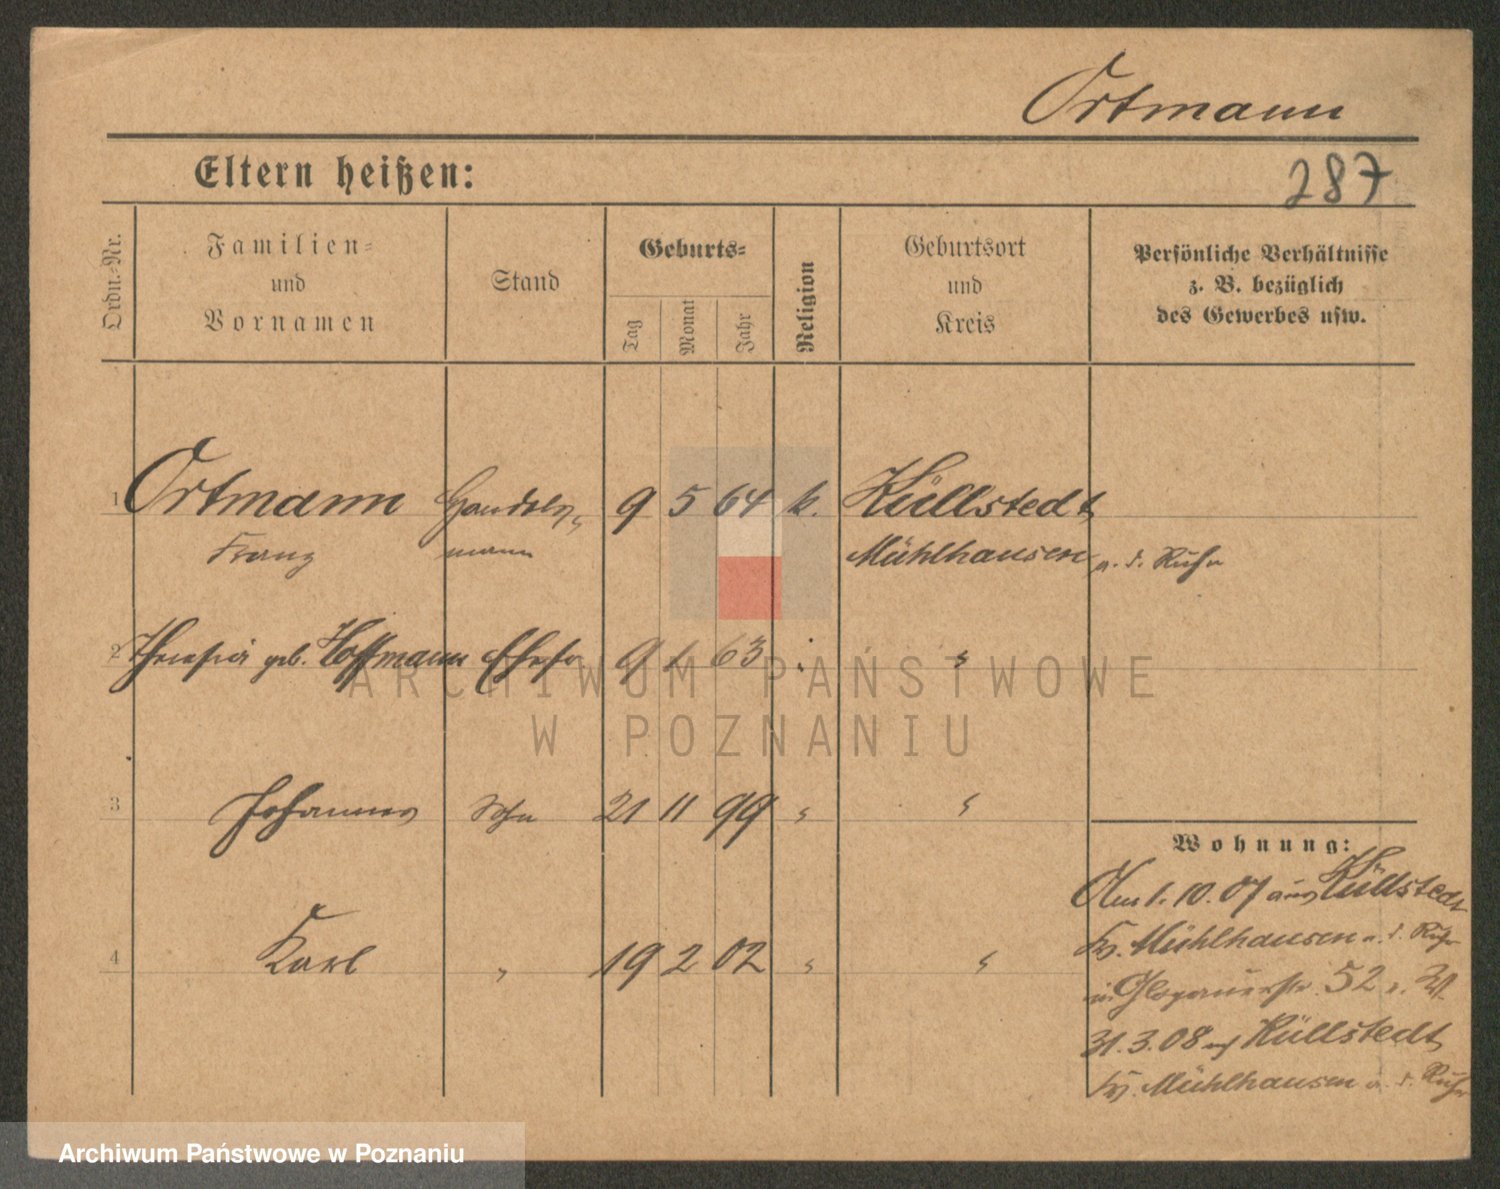 Ortmann
Eltern heißen:
287
Ordn.-Nr.
Familien-
und
Vornamen
Stand
Geburts-
Tag
Monat
Jahr
Religion
Geburtsort
und
Kreis
Persönliche Verhältnisse
z. B. bezüglich
des Gewerbes usw.
1 Ortmann Handels- 9 5 64 k. Küllstedt
Franz mann Mühlhausen a. d. Ruhr
2 Theresia geb. Hoffmann Ehefr 9 1 63 " "
3 Johannes Sohn 21 11 99 " "
Wohnung:
Am 1. 10. 07 aus Küllstedt
Kr. Mühlhausen a. d. Ruhr
4 Karl " 19 2 02 " "
in Glogauerstr. 52
31. 3. 08 Küllstedt
Kr. Mühlhausen a. d. Ruhr
ARCHIWUM PAŃSTWOWE
W POZNANIU
Archiwum Państwowe w Poznaniu